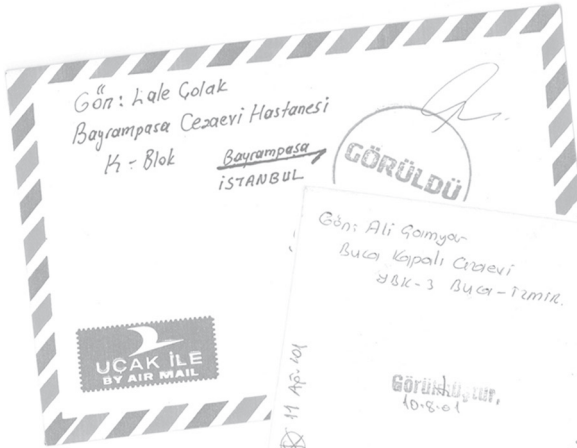 Gön: Lale Çolak
Bayrampasa Cezaevi Hastanesi
K-Blok
Bayrampasa
İSTANBUL
GÖRÜLDÜ
UÇAK İLE
BY AIR MAIL
Gön: Ali Çamyar
Buca Kapalı Cezaevi
YBK-3 Buca-İzmir.
Görülmüştür.
10.8.01